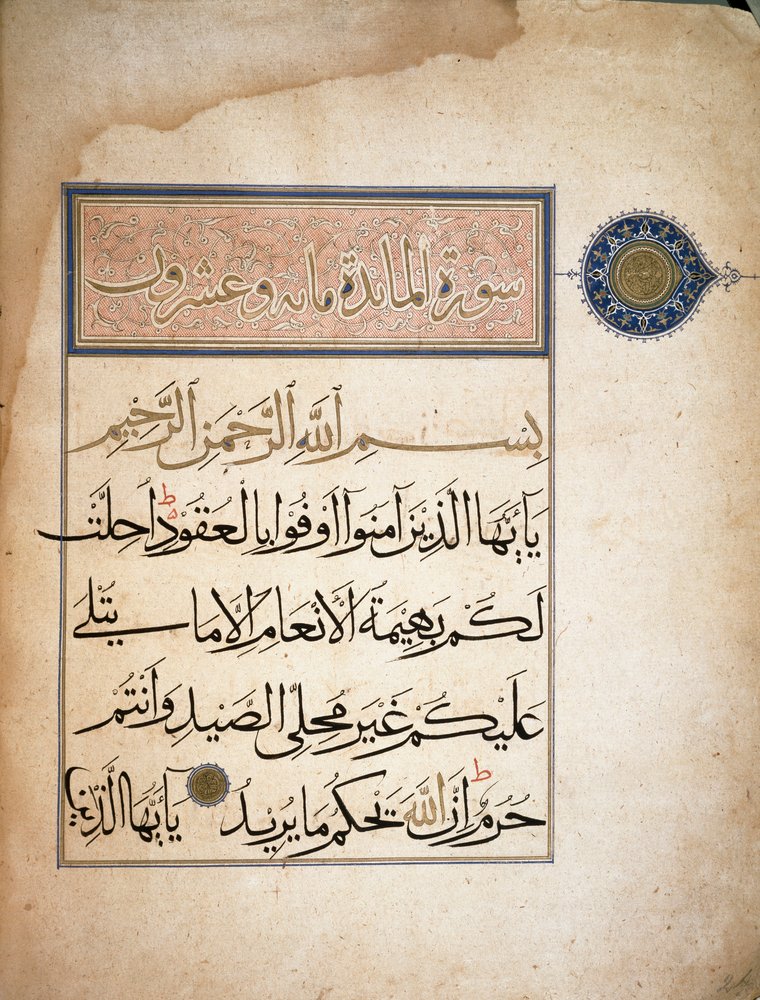 سورة المائدة مایه و عشرون
بِسْمِ ٱللَّهِ ٱلرَّحْمَٰنِ ٱلرَّحِيمِ
يَآ أَيُّهَا الَّذِيْنَ آمَنُوْآ اَوْفُوْا بِالْعُقُوْدِ ط اُحِلَّتْ
لَكُمْ بَهِيْمَةُ الْاَنْعَامِ اِلَّا مَا يُتْلَىٰ
عَلَيْكُمْ غَيْرَ مُحِلِّي الصَّيْدِ وَاَنْتُمْ
حُرُمٌ ط اِنَّ اللَّهَ يَحْكُمُ مَا يُرِيْدُ يَآ أَيُّهَا الَّذِيْنَ